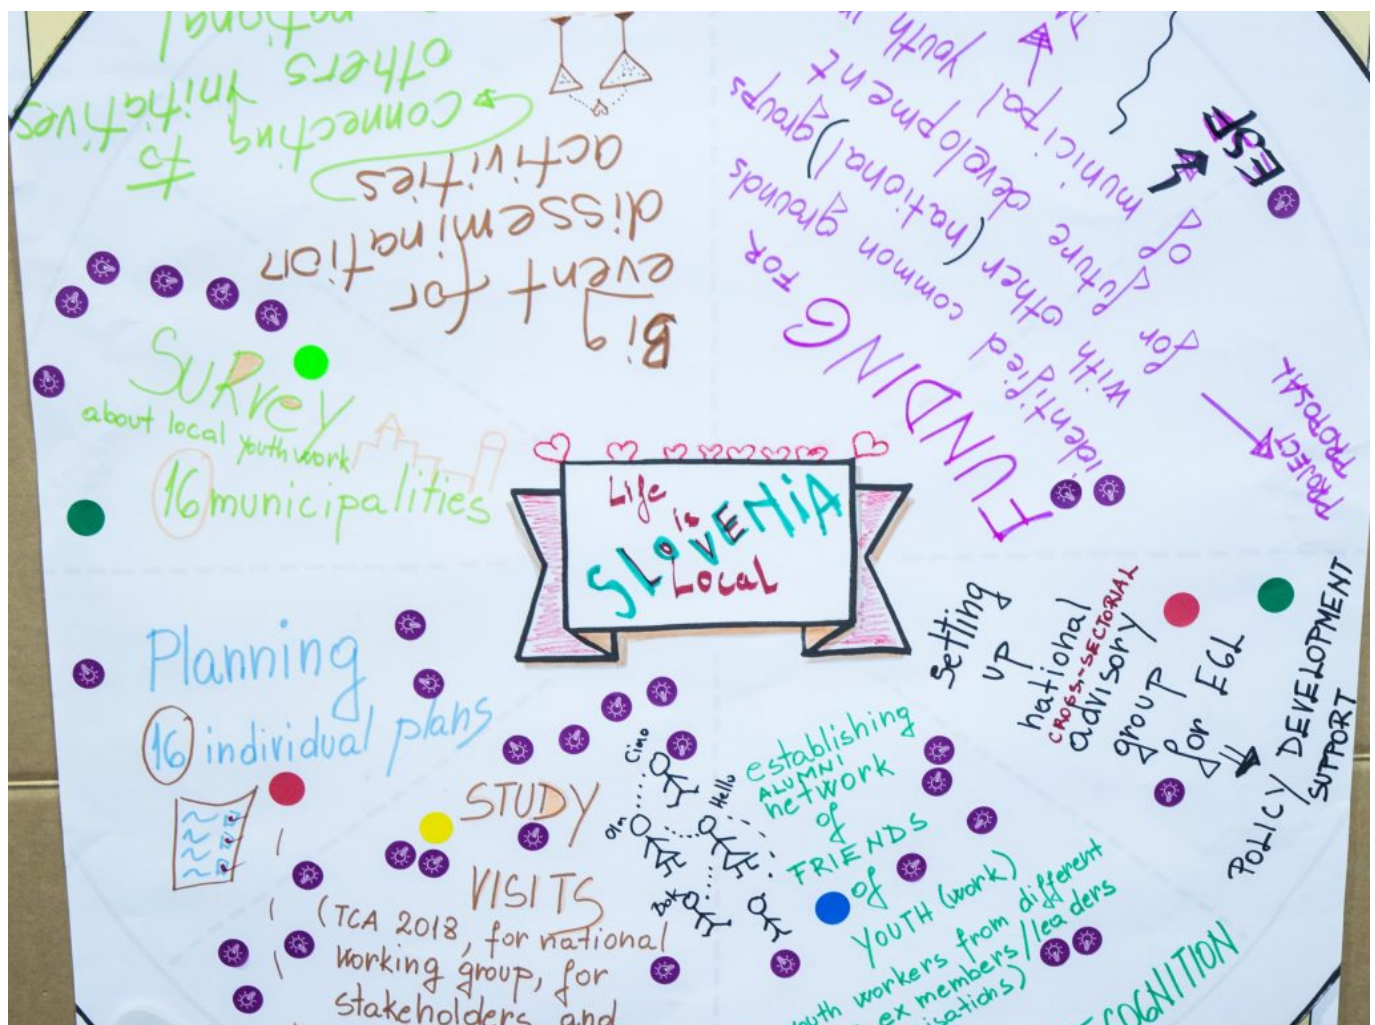 Life
is
SLOVENIA
Local
Survey
about local youth work
16 municipalities
Planning
16 individual plans
STUDY
VISITS
(TCA 2018, for national
working group, for
stakeholders and
Ciao
Hello
Olá
establishing
ALUMNI
network
of
FRIENDS
of
YOUTH (work)
youth workers from different
ex members/leaders
Setting
up
national
CROSS-SECTORIAL
advisory
group
for EGL
POLICY/DEVELOPMENT
SUPPORT
FUNDING FOR
identified common grounds
with other (national) groups
for future development
of municipal youth
ESF
PROJECT
PROPOSAL
Big
event for
dissemination
activities
connecting to
others initiatives